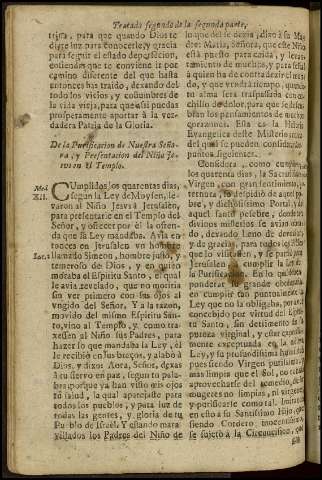 Tratado segundo de la segunda parte,
trina, para que quando Dios te
diere luz para conocerle, y gracia
para seguir el estado de perfeccion,
entiendas que te conviene ir por
camino diferente del que hasta
entonces has traido, dexando del
todo los vicios, y costumbres de
la vida vieja, para que assi puedas
prosperamente aportar à la ver-
dadera Patria de la Gloria.
De la Purificacion de Nuestra Seño-
ra, y Presentacion del Niño Je-
sus en el Templo.
Med.
XII.
CUmplidos los quarenta dias,
segun la Ley de Moysen, le
varon al Niño Jesus à Jerusalèn,
para presentarle en el Templo del
Señor, y ofrecer por èl la ofren-
da que la Ley mandava. Avia en-
tonces en Jerusalèn un hombre
Luc. 2.
llamado Simeon, hombre justo, y
temeroso de Dios, y en quien
morava el Espiritu Santo, el qual
le avia revelado, que no moriria
sin ver primero con sus ojos al
ungido del Señor. Y a la razon,
movido del mismo Espiritu San-
to, vino al Templo, y como tra-
xessen al Niño sus Padres, para
hazer lo que mandava la Ley, èl
le recibiò en sus braços, y alabò à
Dios, y dixo: Aora, Señor, dexas
à tu siervo en paz, segun tu pala-
bra porque ya han visto mis ojos
tu salud, la qual aparejaste para
todos los pueblos, y para luz de
todas las gentes, y gloria de tu
Pueblo de Israèl. Y estando mara-
villados los Padres del Niño de
lo que del se dezia, dixo à su Ma-
dre: Maria, Señora, que este Niño
està puesto para caida, y levan-
tamiento de muchos, y para señal
à quien ha de contradezir el mun-
do, y que vendra tiempo, quando
su anima serà traspassada con
cuchillo de dolor, para que se des-
cubran los pensamientos de muchos
coraçones. Esta es la Historia
Evangelica deste Mysterio
del qual se pueden considerar los
puntos siguientes.
Considera, como cumplidos
los quarenta dias, la Sacratissima
Virgen, con gran sentimiento,
y ternura, se despidiò de aquel po-
bre, y dichosissimo Portal, y de
aquel santo pesebre, donde tan
divinos mysterios se avian obra-
do, dexando lleno de devocion,
y de gracia, para todos los
que lo visitassen, y se partiò
Jerusalèn à cumplir la Ley de
la Purificacion. En lo qual
ponderar la grande obediencia
en cumplir tan puntualmente
Ley que no la obligava, por aver
concebido por virtud del Espiri-
tu Santo, sin detrimento de su
pureza virginal, y estar expressa-
mente exceptuada en la misma
Ley, y su profundissima humildad
pues siendo Virgen purissima, y
mas limpia que el Sol, no
aprovecharse del remedio, de
mugeres no limpias, ni virgenes,
y purificarse como tal. Imitando
en esto à su Santissimo Hijo, que
siendo Cordero inocentissimo,
se sujetò à la Circuncision,